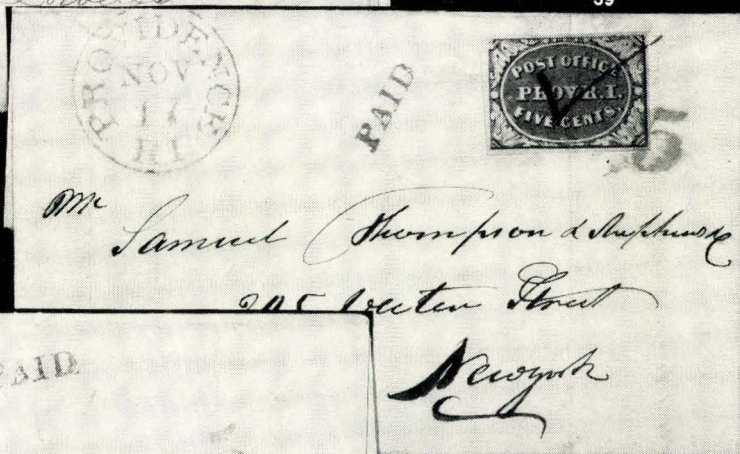 39
PROVIDENCE
NOV
17
R I
PAID
POST OFFICE
PROV. R.I.
FIVE CENTS.
5
Mr
Samuel Thompson & Nephews
205 Street
Newyork
PAID